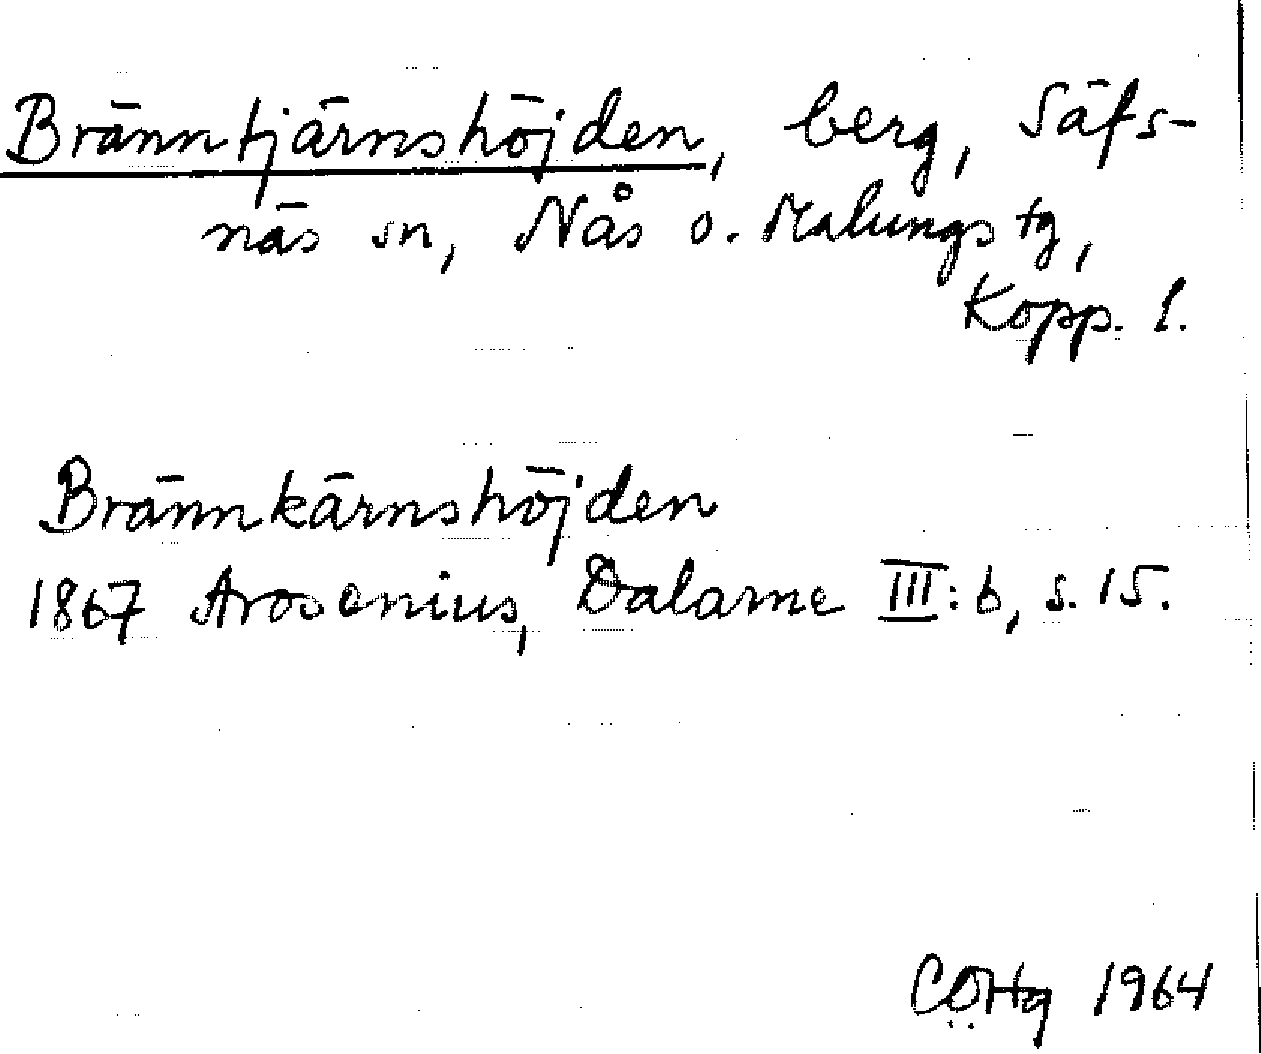 Bränntjärnshöjden, berg, Säfs-
näs sn, Nås o. Malungs tg,
Kopp. l.
Brännkärnshöjden
1867 Arosenius, Dalarne III:b, s. 15.
1964